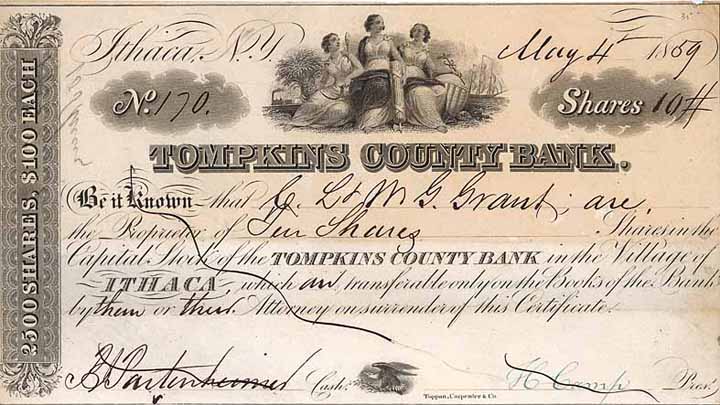 2500 SHARES, $100 EACH
Ithaca, N.Y. May 4th 1859
No. 170. Shares 10 #
TOMPKINS COUNTY BANK.
Be it Known that C. L & W G. Grant, are,
the Proprietor of Ten Shares Shares in the
Capital Stock of the TOMPKINS COUNTY BANK in the Village of
ITHACA, which are, transferable only on the Books of the Bank
by them or their Attorney on surrender of this Certificate.
Cash. H Camp Pres.
Toppan, Carpenter & Co.